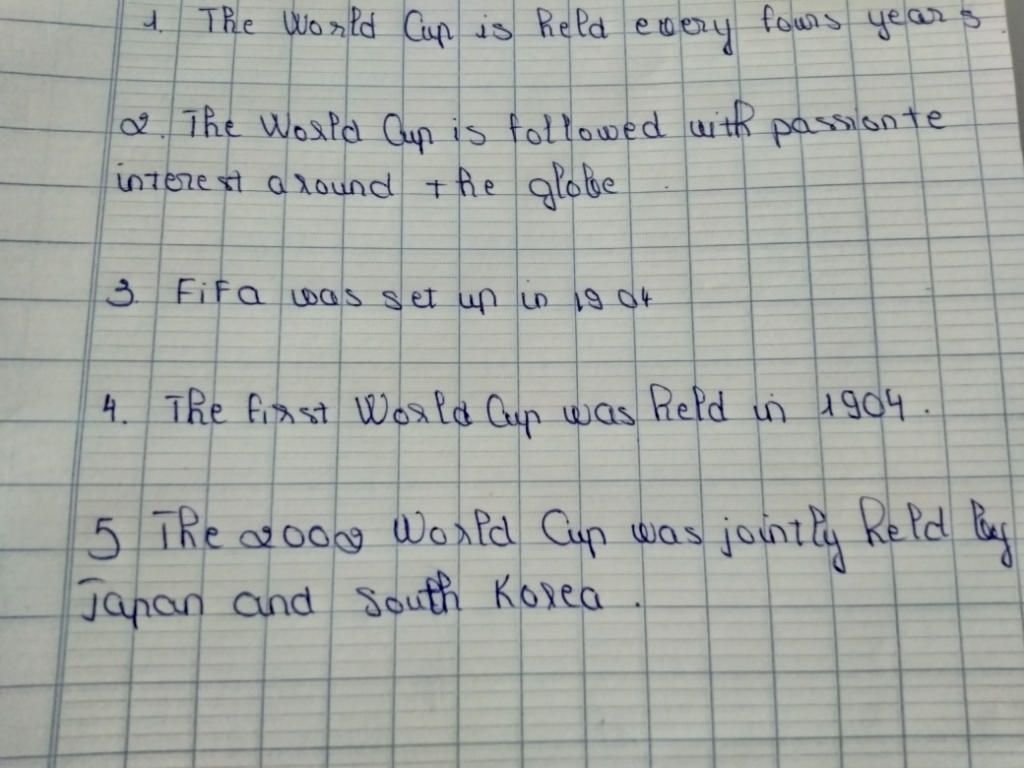 1. The World Cup is held every fours years.
2. The World Cup is followed with passionte
interest around the globe.
3. FiFa was set up in 1904
4. The first World Cup was held in 1904.
5 The 2002 World Cup was jointly held by
Japan and South Korea.